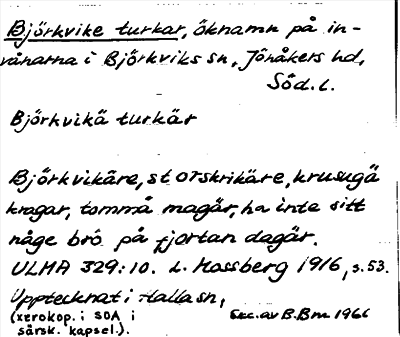 Björkvike turkar, öknamn på in-
vånarna i Björkviks sn, Jönåkers hd,
Söd.l.
Björkvikä turkär
Björkvikäre, storskrikäre, krusugä
kragar, tommå magär, ha inte sitt
någe brö på fjortan dagär.
ULMA 329:10. L. Mossberg 1916, s.53.
Upptecknat i Halla sn,
(xerokop. i SOA i
särsk. kapsel.).
Exc. av B.Bm 1966